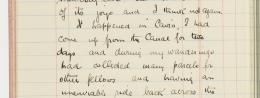 of its joys and I think not again
It happened in Cairo, I had
come up from the Canal for two
days and during my wanderings
had collected many parcels for
other fellows and having an
miserable ride back across the